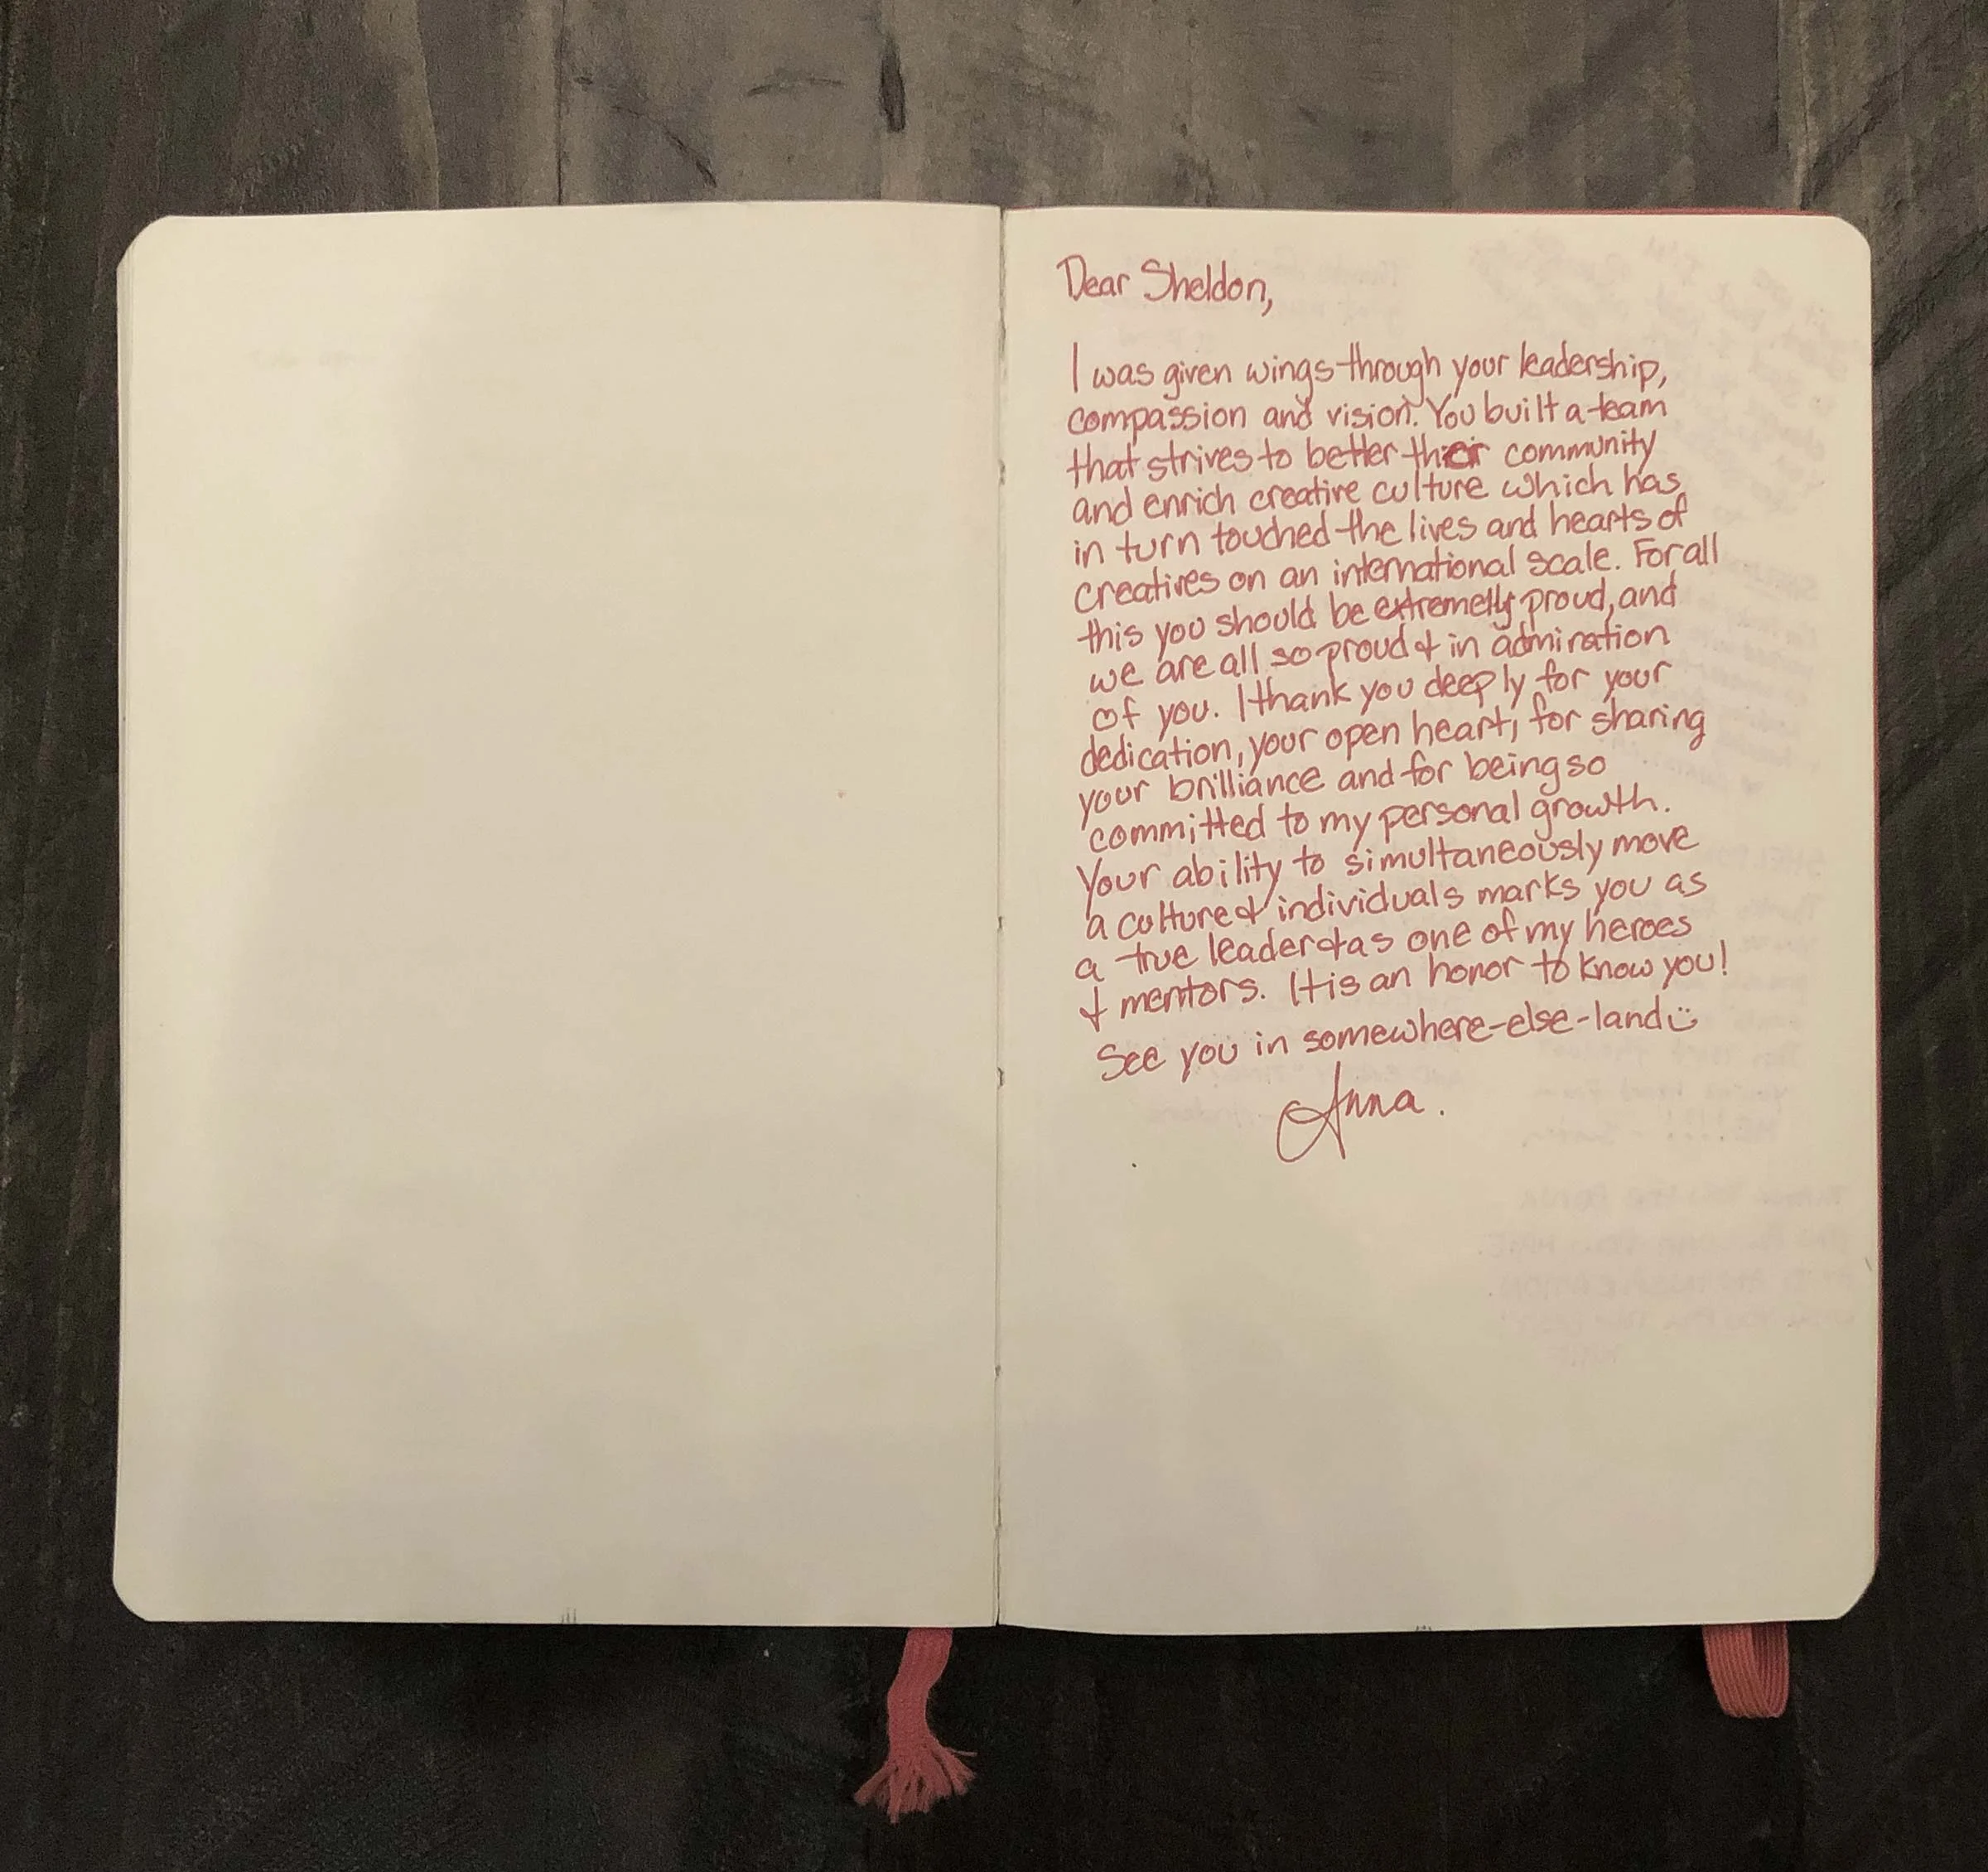 Dear Sheldon,
I was given wings through your leadership,
compassion and vision. You built a team
that strives to better their community
and enrich creative culture which has
in turn touched the lives and hearts of
creatives on an international scale. For all
this you should be extremelly proud, and
we are all so proud & in admiration
of you. I thank you deeply for your
dedication, your open heart, for sharing
your brilliance and for being so
committed to my personal growth.
Your ability to simultaneously move
a culture & individuals marks you as
a true leader & as one of my heroes
& mentors. It is an honor to know you!
See you in somewhere-else-land ☺
Anna.